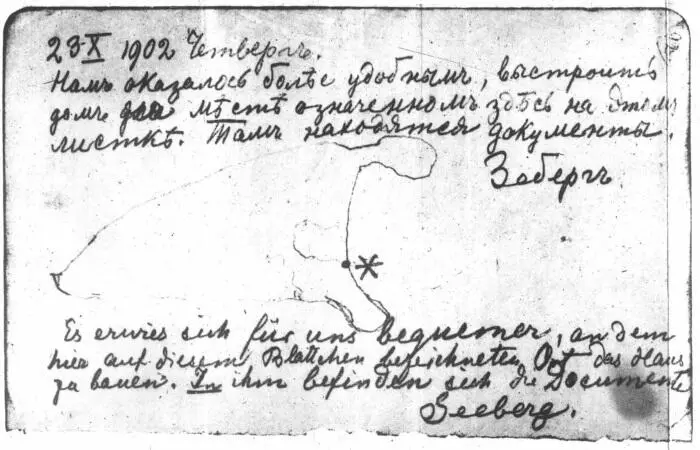 23·X 1902 Четвергъ.
Намъ оказалось болѣе удобнымъ, выстроить
домъ на мѣстѣ означенномъ здѣсь на этомъ
листкѣ. Тамъ находятся документы.
Зебергъ.
Es erwies sich für uns bequemer, an dem
hier auf diesem Blättchen bezeichneten Ort das Haus
zu bauen. In ihm befinden sich die Documente
Seeberg.